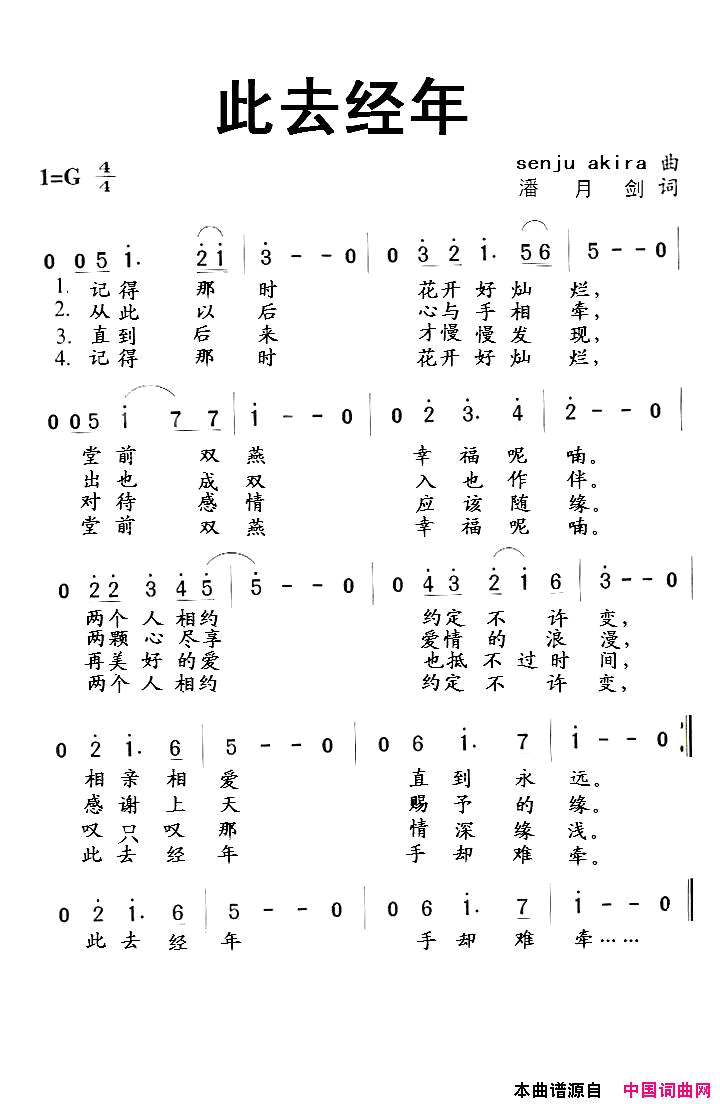 此去经年
senju akira 曲
1=G 4/4
潘 月 剑 词
0 05 1. 21 | 3--0 | 0 32 1. 56 | 5--0 |
1. 记得 那 时 花开好灿 烂，
2. 从此 以 后 心与手相 牵，
3. 直到 后 来 才慢慢发 现，
4. 记得 那 时 花开好灿 烂，
0 05 1 7 7 | 1--0 | 0 2 3. 4 | 2--0 |
堂 前 双 燕 幸 福 呢 喃。
出 也 成 双 入 也 作 伴。
对 待 感 情 应 该 随 缘。
堂 前 双 燕 幸 福 呢 喃。
0 22 3 45 | 5--0 | 0 43 2 1 6 | 3--0 |
两个 人 相约 约定 不 许 变，
两颗 心 尽享 爱情 的 浪 漫，
再美 好 的爱 也抵 不 过 时 间，
两个 人 相约 约定 不 许 变，
0 2 1. 6 | 5--0 | 0 6 1. 7 | 1--0 :||
相 亲 相 爱 直 到 永 远。
感 谢 上 天 赐 予 的 缘。
叹 只 叹 那 情 深 缘 浅。
此 去 经 年 手 却 难 牵。
0 2 1. 6 | 5--0 | 0 6 1. 7 | 1--0 ||
此 去 经 年 手 却 难 牵……
本曲谱源自 中国词曲网